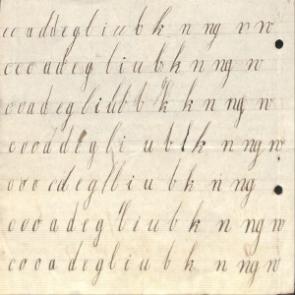 cc a d d e g l i u b k n ng v w
c c o a d e g l i u b k n ng w
c o o a d e g l i u b b k k n ng w
c o o a d e g l i u b l k n ng w
o o o c d e g l b i u b k n ng
c o o a d e g l i u b k n ng w
c o o a d e g b i u b k n ng w